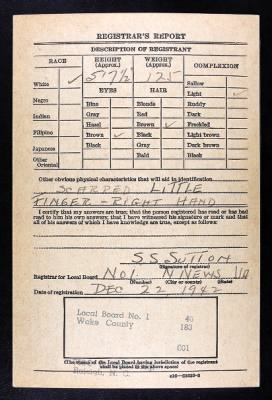 REGISTRAR'S REPORT
DESCRIPTION OF REGISTRANT
RACE HEIGHT (Approx.) WEIGHT (Approx.) COMPLEXION
White ✓ 5' 7½" 125 Sallow
EYES HAIR Light ✓
Negro Blue Blonde Ruddy
Indian Gray Red Dark
Filipino Hazel Brown ✓ Freckled
Brown ✓ Black Light brown
Japanese Black Gray Dark brown
Other Oriental Bald Black
Other obvious physical characteristics that will aid in identification
SCARRED LITTLE
FINGER - RIGHT HAND
I certify that my answers are true; that the person registered has read or has had
read to him his own answers; that I have witnessed his signature or mark and that
all of his answers of which I have knowledge are true, except as follows:
S.S. SUTTON
(Signature of registrar)
Registrar for Local Board NO 1 N NEWS VA
(Number) (City or county) (State)
Date of registration DEC 22 1942
Local Board No. 1 40
Wake County 183
001
(The stamp of the Local Board having jurisdiction of the registrant
shall be placed in the above space)
Raleigh, N. C.